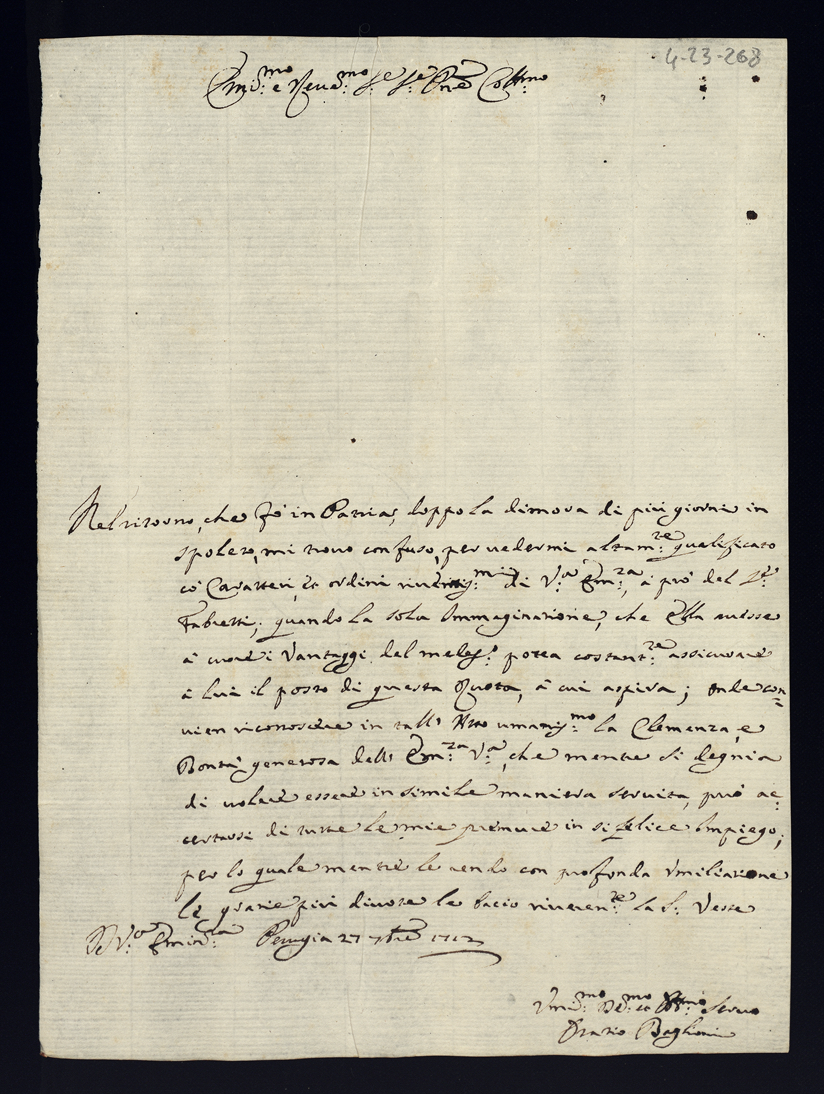 4-23-268
Em:mo e Reve:mo Sre Sre Pne Coll:mo
Nel ritorno, che fò in Patria, doppo la dimora di più giorni in
Spoleto, mi trovo confuso, per vedermi altam:te qualificato
có Caratteri, et ordini di V:a Em:za, à prò del Sr:
Fabretti; quando la sola Immaginazione, che Ella avesse
à cuore i Vantaggi del medes:o potea costant:te assicurare
à lui il posto di questa Ruota, à cui aspira; onde con=
vien riconoscere in tall' Atto umaniss:mo la Clemenza, e
Bontà generosa dell' Em:za V:a, che mentre si degnia
di volere essere in simile maniera servita, può ac:
certarsi di tutte le mie premure in sì felice Impiego;
per lo quale mentre le rendo con profonda Umiliazione
le grazie più divote le bacio riveren:te la S: Veste
De V:a Emin:za Perugia 27 7bre 1712
Umi:mo De:mo et Obb:mo Servo
Orazio Baglioni